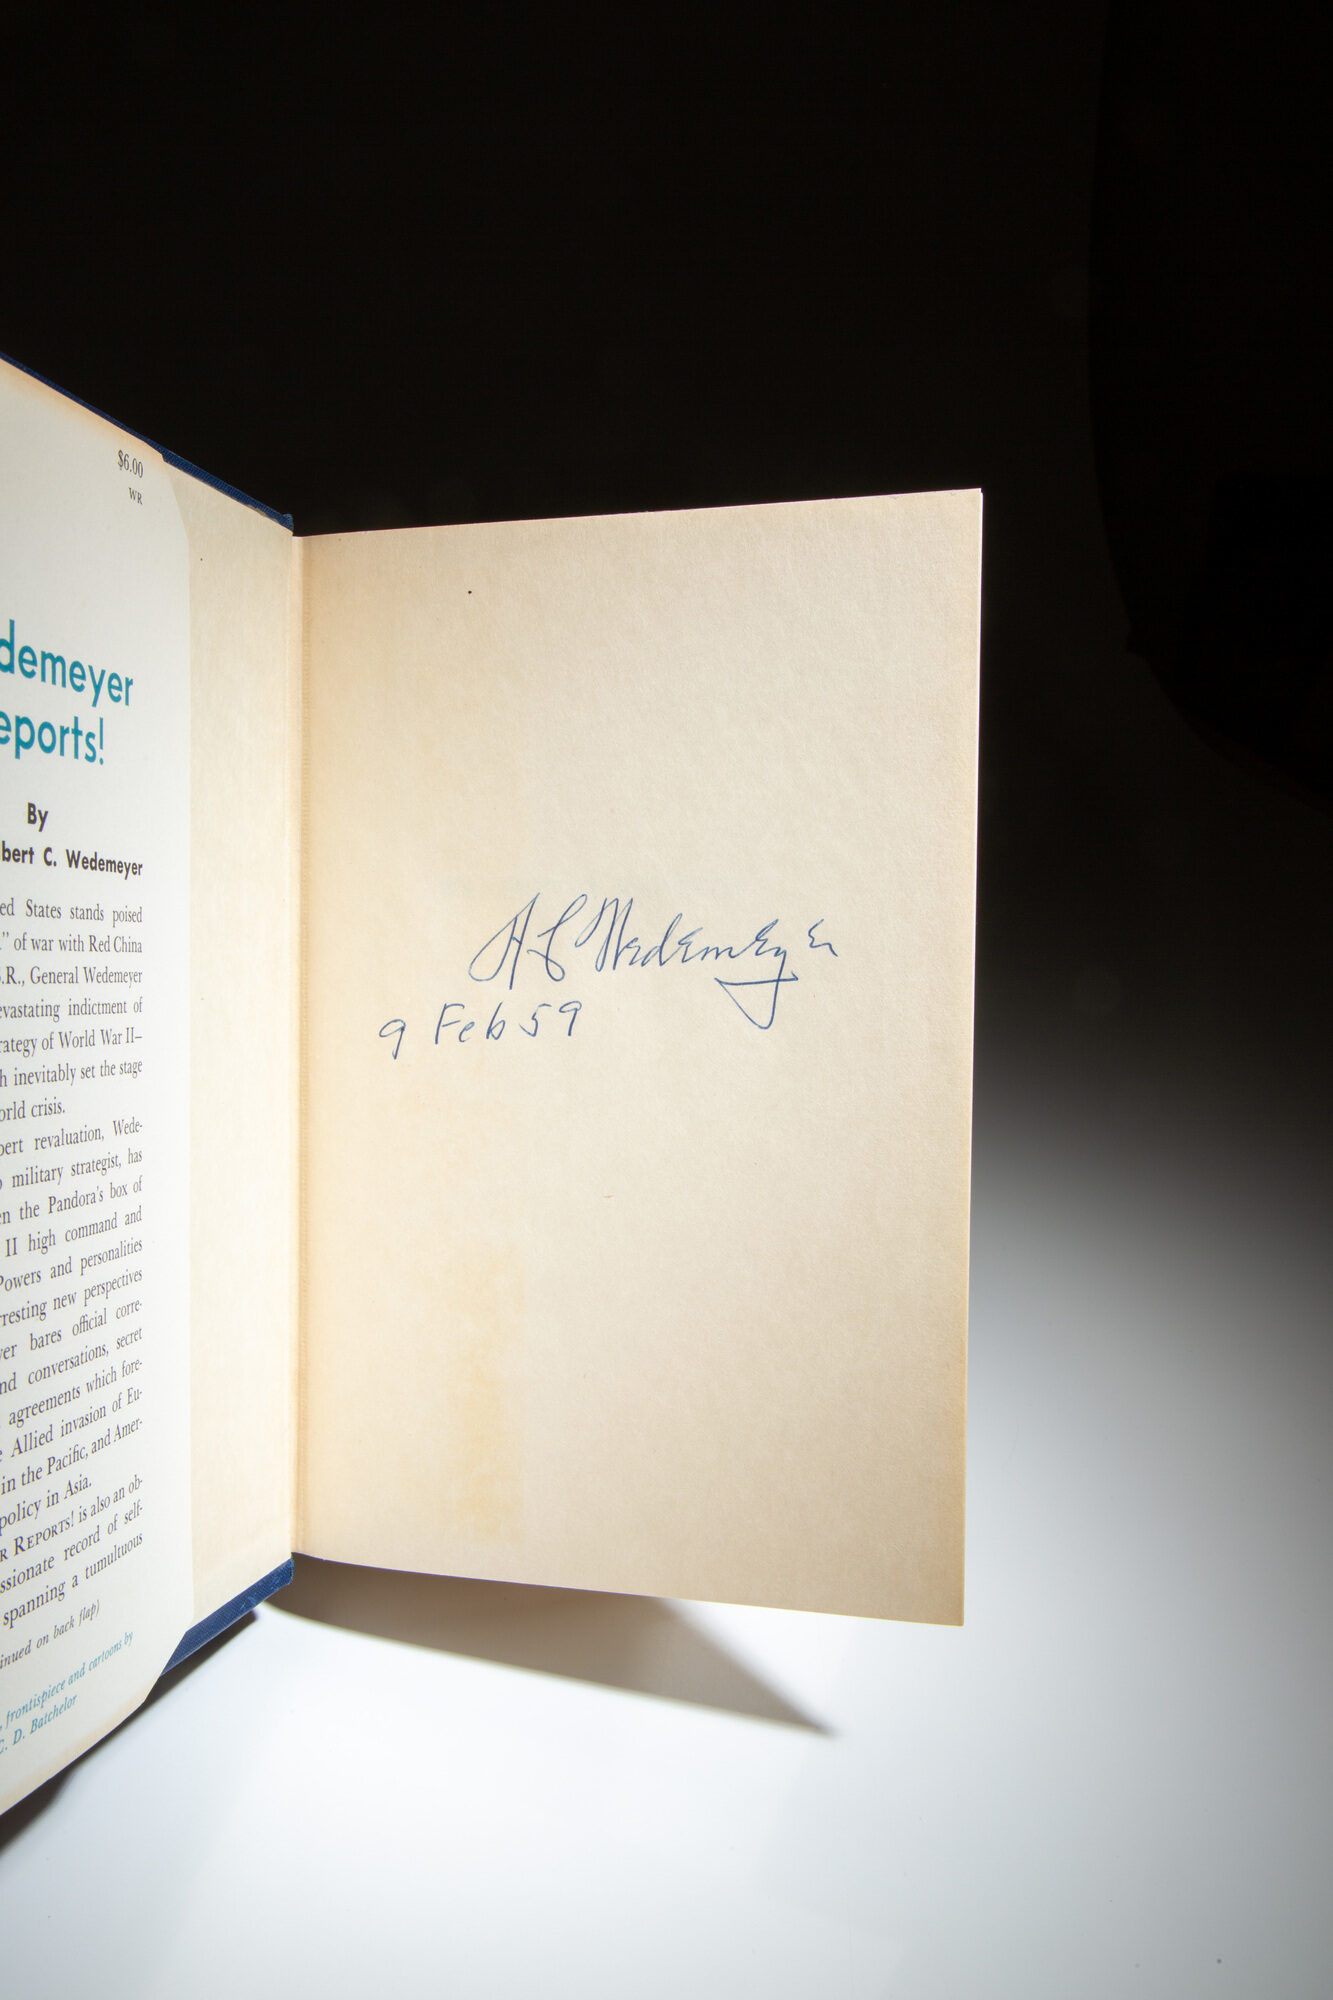 $6.00
WR
demeyer
eports!
By
bert C. Wedemeyer
ed States stands poised
." of war with Red China
.R., General Wedemeyer
evastating indictment of
rategy of World War II–
h inevitably set the stage
orld crisis.
pert revaluation, Wede-
military strategist, has
n the Pandora's box of
II high command and
Powers and personalities
rresting new perspectives
er bares official corre-
nd conversations, secret
agreements which fore-
e Allied invasion of Eu-
in the Pacific, and Amer-
policy in Asia.
R REPORTS! is also an ob-
ssionate record of self-
spanning a tumultuous
inued on back flap)
, frontispiece and cartoons by
C. D. Batchelor
A C Wedemeyer
9 Feb 59